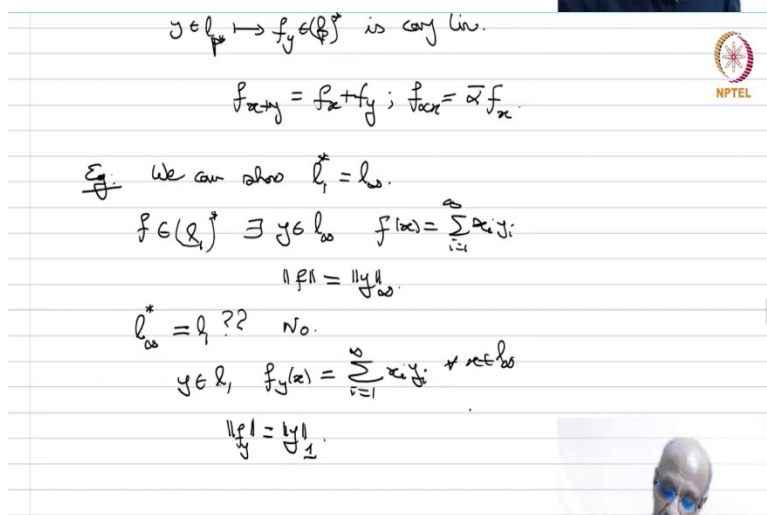 y ∈ l_{p*} ↦ f_y ∈ (l_p)* is conj lin.
NPTEL
f_{x+y} = f_x + f_y ; f_{αx} = ᾱ f_x.
Eg. We can show l_1* = l_∞.
f ∈ (l_1)* ∃ y ∈ l_∞ f(x) = ∑_{i=1}^∞ x_i y_i
‖f‖ = ‖y‖_∞.
l_∞* = l_1 ?? No.
y ∈ l_1 f_y(x) = ∑_{i=1}^∞ x_i y_i ∀ x ∈ l_∞
‖f_y‖ = ‖y‖_1.